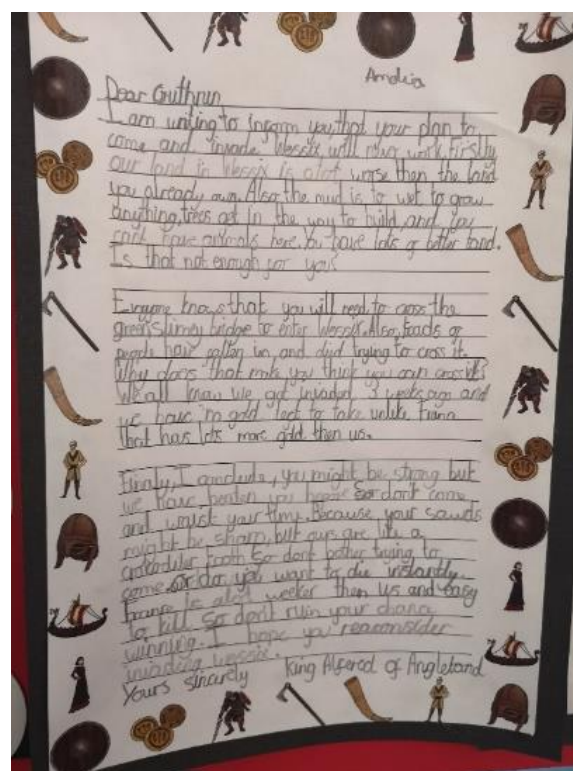 Amelia
Dear Guthrun
I am writing to inform you, that your plan to
come and invade Wessix, will never work. Firstly
our land in Wessix is alot worse then the land
you already own. Also the mud is to wet to grow
anything, trees get in the way to build, and you
cant have animals here. You have lots of better land.
Is that not enough for you?
Everyone knows that you will need to cross the
green slimey bridge to enter Wessix. Also, loads of
people have fallen in, and died trying to cross it.
Why does that make you think you can cross it?
We all know we got invaded 3 weeks ago and
we have no gold left to take unlike
that has lots more gold then us.
Finally, I conclude, you might be strong but
we have beaten you before so dont come
and waist your time. Because your sawds
might be sharp, but ours are like a
crocodiles tooth so dont bother trying to
come, or do you want to die instantly.
france is alot weeker then us and easy
to kill. So don't ruin your chance
winning. I hope you reaconsider
invading wessix.
Yours sincerly King Alfered of Angleland